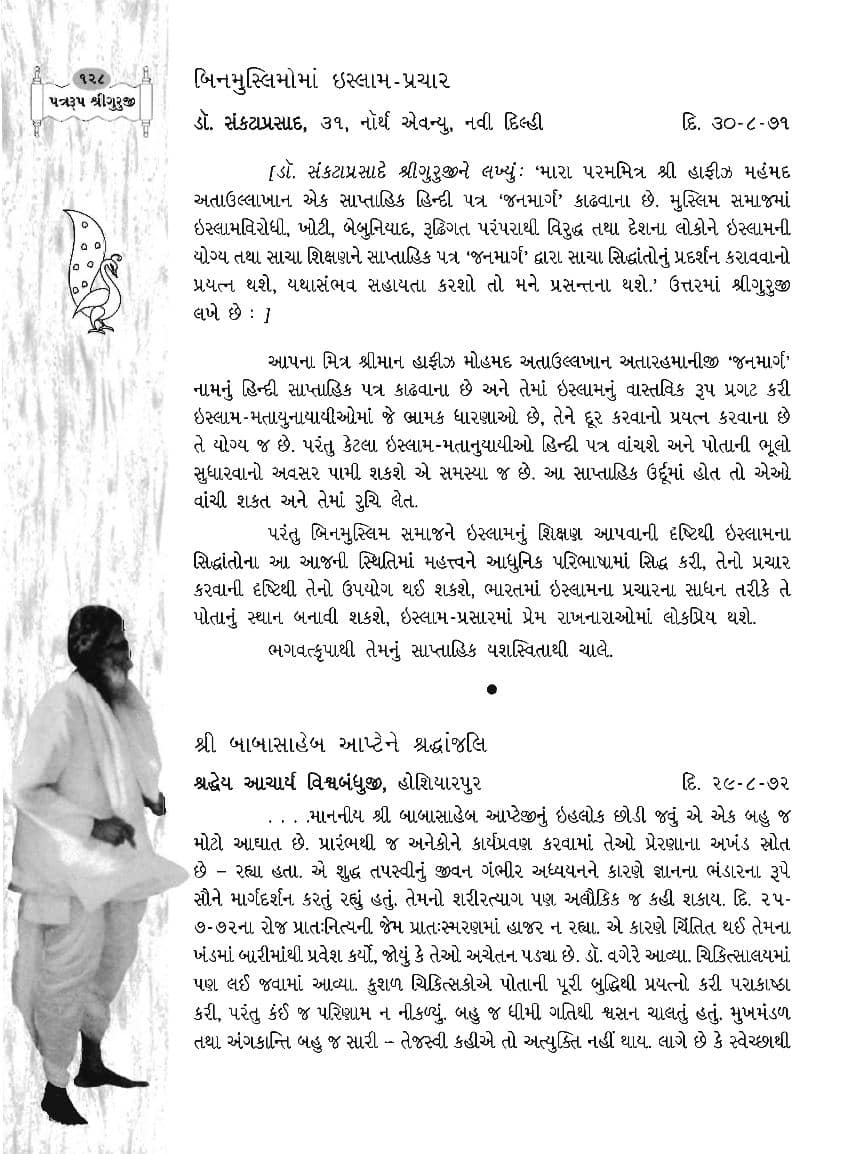 ૧૨૮
પત્રરૂપ શ્રીગુરુજી
બિનમુસ્લિમોમાં ઇસ્લામ-પ્રચાર
ડૉ. સંકટાપ્રસાદ, ૩૧, નૉર્થ એવન્યુ, નવી દિલ્હી દિ. ૩૦-૮-૭૧
[ડૉ. સંકટાપ્રસાદે શ્રીગુરુજીને લખ્યું: ‘મારા પરમમિત્ર શ્રી હાફીઝ મહંમદ
અતાઉલ્લાખાન એક સાપ્તાહિક હિન્દી પત્ર ‘જનમાર્ગ’ કાઢવાના છે. મુસ્લિમ સમાજમાં
ઇસ્લામવિરોધી, ખોટી, બેબુનિયાદ, રૂઢિગત પરંપરાથી વિરુદ્ધ તથા દેશના લોકોને ઇસ્લામની
યોગ્ય તથા સાચા શિક્ષણને સાપ્તાહિક પત્ર ‘જનમાર્ગ’ દ્વારા સાચા સિદ્ધાંતોનું પ્રદર્શન કરાવવાનો
પ્રયત્ન થશે, યથાસંભવ સહાયતા કરશો તો મને પ્રસન્તના થશે.’ ઉત્તરમાં શ્રીગુરુજી
લખે છે : ]
આપના મિત્ર શ્રીમાન હાફીઝ મોહમદ અતાઉલ્લખાન અતારહમાનીજી ‘જનમાર્ગ’
નામનું હિન્દી સાપ્તાહિક પત્ર કાઢવાના છે અને તેમાં ઇસ્લામનું વાસ્તવિક રૂપ પ્રગટ કરી
ઇસ્લામ-મતાયુનાયાયીઓમાં જે ભ્રામક ધારણાઓ છે, તેને દૂર કરવાનો પ્રયત્ન કરવાના છે
તે યોગ્ય જ છે. પરંતુ કેટલા ઇસ્લામ-મતાનુયાયીઓ હિન્દી પત્ર વાંચશે અને પોતાની ભૂલો
સુધારવાનો અવસર પામી શકશે એ સમસ્યા જ છે. આ સાપ્તાહિક ઉર્દૂમાં હોત તો એઓ
વાંચી શકત અને તેમાં રુચિ લેત.
પરંતુ બિનમુસ્લિમ સમાજને ઇસ્લામનું શિક્ષણ આપવાની દૃષ્ટિથી ઇસ્લામના
સિદ્ધાંતોના આ આજની સ્થિતિમાં મહત્ત્વને આધુનિક પરિભાષામાં સિદ્ધ કરી, તેનો પ્રચાર
કરવાની દૃષ્ટિથી તેનો ઉપયોગ થઈ શકશે, ભારતમાં ઇસ્લામના પ્રચારના સાધન તરીકે તે
પોતાનું સ્થાન બનાવી શકશે, ઇસ્લામ-પ્રસારમાં પ્રેમ રાખનારાઓમાં લોકપ્રિય થશે.
ભગવત્કૃપાથી તેમનું સાપ્તાહિક યશસ્વિતાથી ચાલે.
●
શ્રી બાબાસાહેબ આપ્ટેને શ્રદ્ધાંજલિ
શ્રદ્ધેય આચાર્ય વિશ્વબંધુજી, હોશિયારપુર દિ. ૨૯-૮-૭૨
. . . .માનનીય શ્રી બાબાસાહેબ આપ્ટેજીનું ઇહલોક છોડી જવું એ એક બહુ જ
મોટો આઘાત છે. પ્રારંભથી જ અનેકોને કાર્યપ્રવણ કરવામાં તેઓ પ્રેરણાના અખંડ સ્રોત
છે – રહ્યા હતા. એ શુદ્ધ તપસ્વીનું જીવન ગંભીર અધ્યયનને કારણે જ્ઞાનના ભંડારના રૂપે
સૌને માર્ગદર્શન કરતું રહ્યું હતું. તેમનો શરીરત્યાગ પણ અલૌકિક જ કહી શકાય. દિ. ૨૫-
૭-૭૨ના રોજ પ્રાતઃનિત્યની જેમ પ્રાતઃસ્મરણમાં હાજર ન રહ્યા. એ કારણે ચિંતિત થઈ તેમના
ખંડમાં બારીમાંથી પ્રવેશ કર્યો, જોયું કે તેઓ અચેતન પડ્યા છે. ડૉ. વગેરે આવ્યા. ચિકિત્સાલયમાં
પણ લઈ જવામાં આવ્યા. કુશળ ચિકિત્સકોએ પોતાની પૂરી બુદ્ધિથી પ્રયત્નો કરી પરાકાષ્ઠા
કરી, પરંતુ કંઈ જ પરિણામ ન નીકળ્યું, બહુ જ ધીમી ગતિથી શ્વસન ચાલતું હતું. મુખમંડળ
તથા અંગકાન્તિ બહુ જ સારી – તેજસ્વી કહીએ તો અત્યુક્તિ નહીં થાય. લાગે છે કે સ્વેચ્છાથી